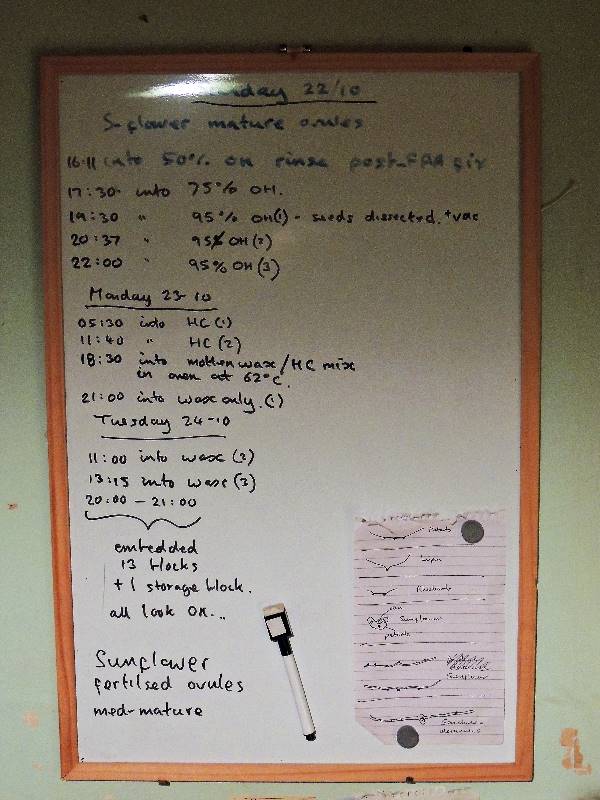 day 22/10
S-flower mature ovules
16-11 into 50% OH rinse post-FAA fix
17:30 into 75% OH.
19:30 " 95% OH(1) - seeds dissected. +vac
20:37 " 95% OH(2)
22:00 " 95% OH(3)
Monday 23-10
05:30 into HC(1)
11:40 " HC(2)
18:30 into molten wax/HC mix
in oven at 62°C.
21:00 into wax only.(1)
Tuesday 24-10
11:00 into wax (2)
13:15 into wax (3)
20:00 - 21:00
embedded
13 blocks
+ 1 storage block.
all look OK...
Sunflower
fertilsed ovules
med-mature
Sunflower